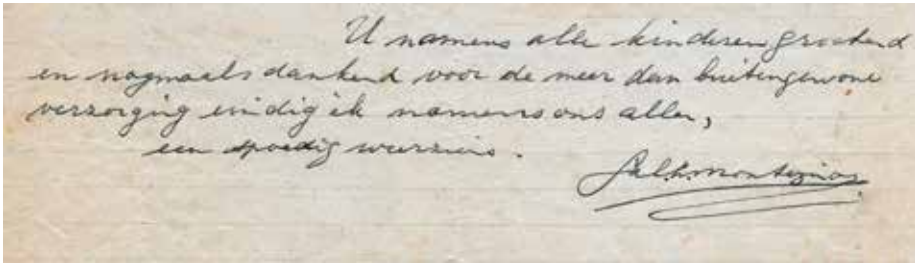 U namens alle kinderen groetend
en nogmaals dankend voor de meer dan buitengewone
verzorging eindig ik namens ons allen,
een spoedig weerziens.